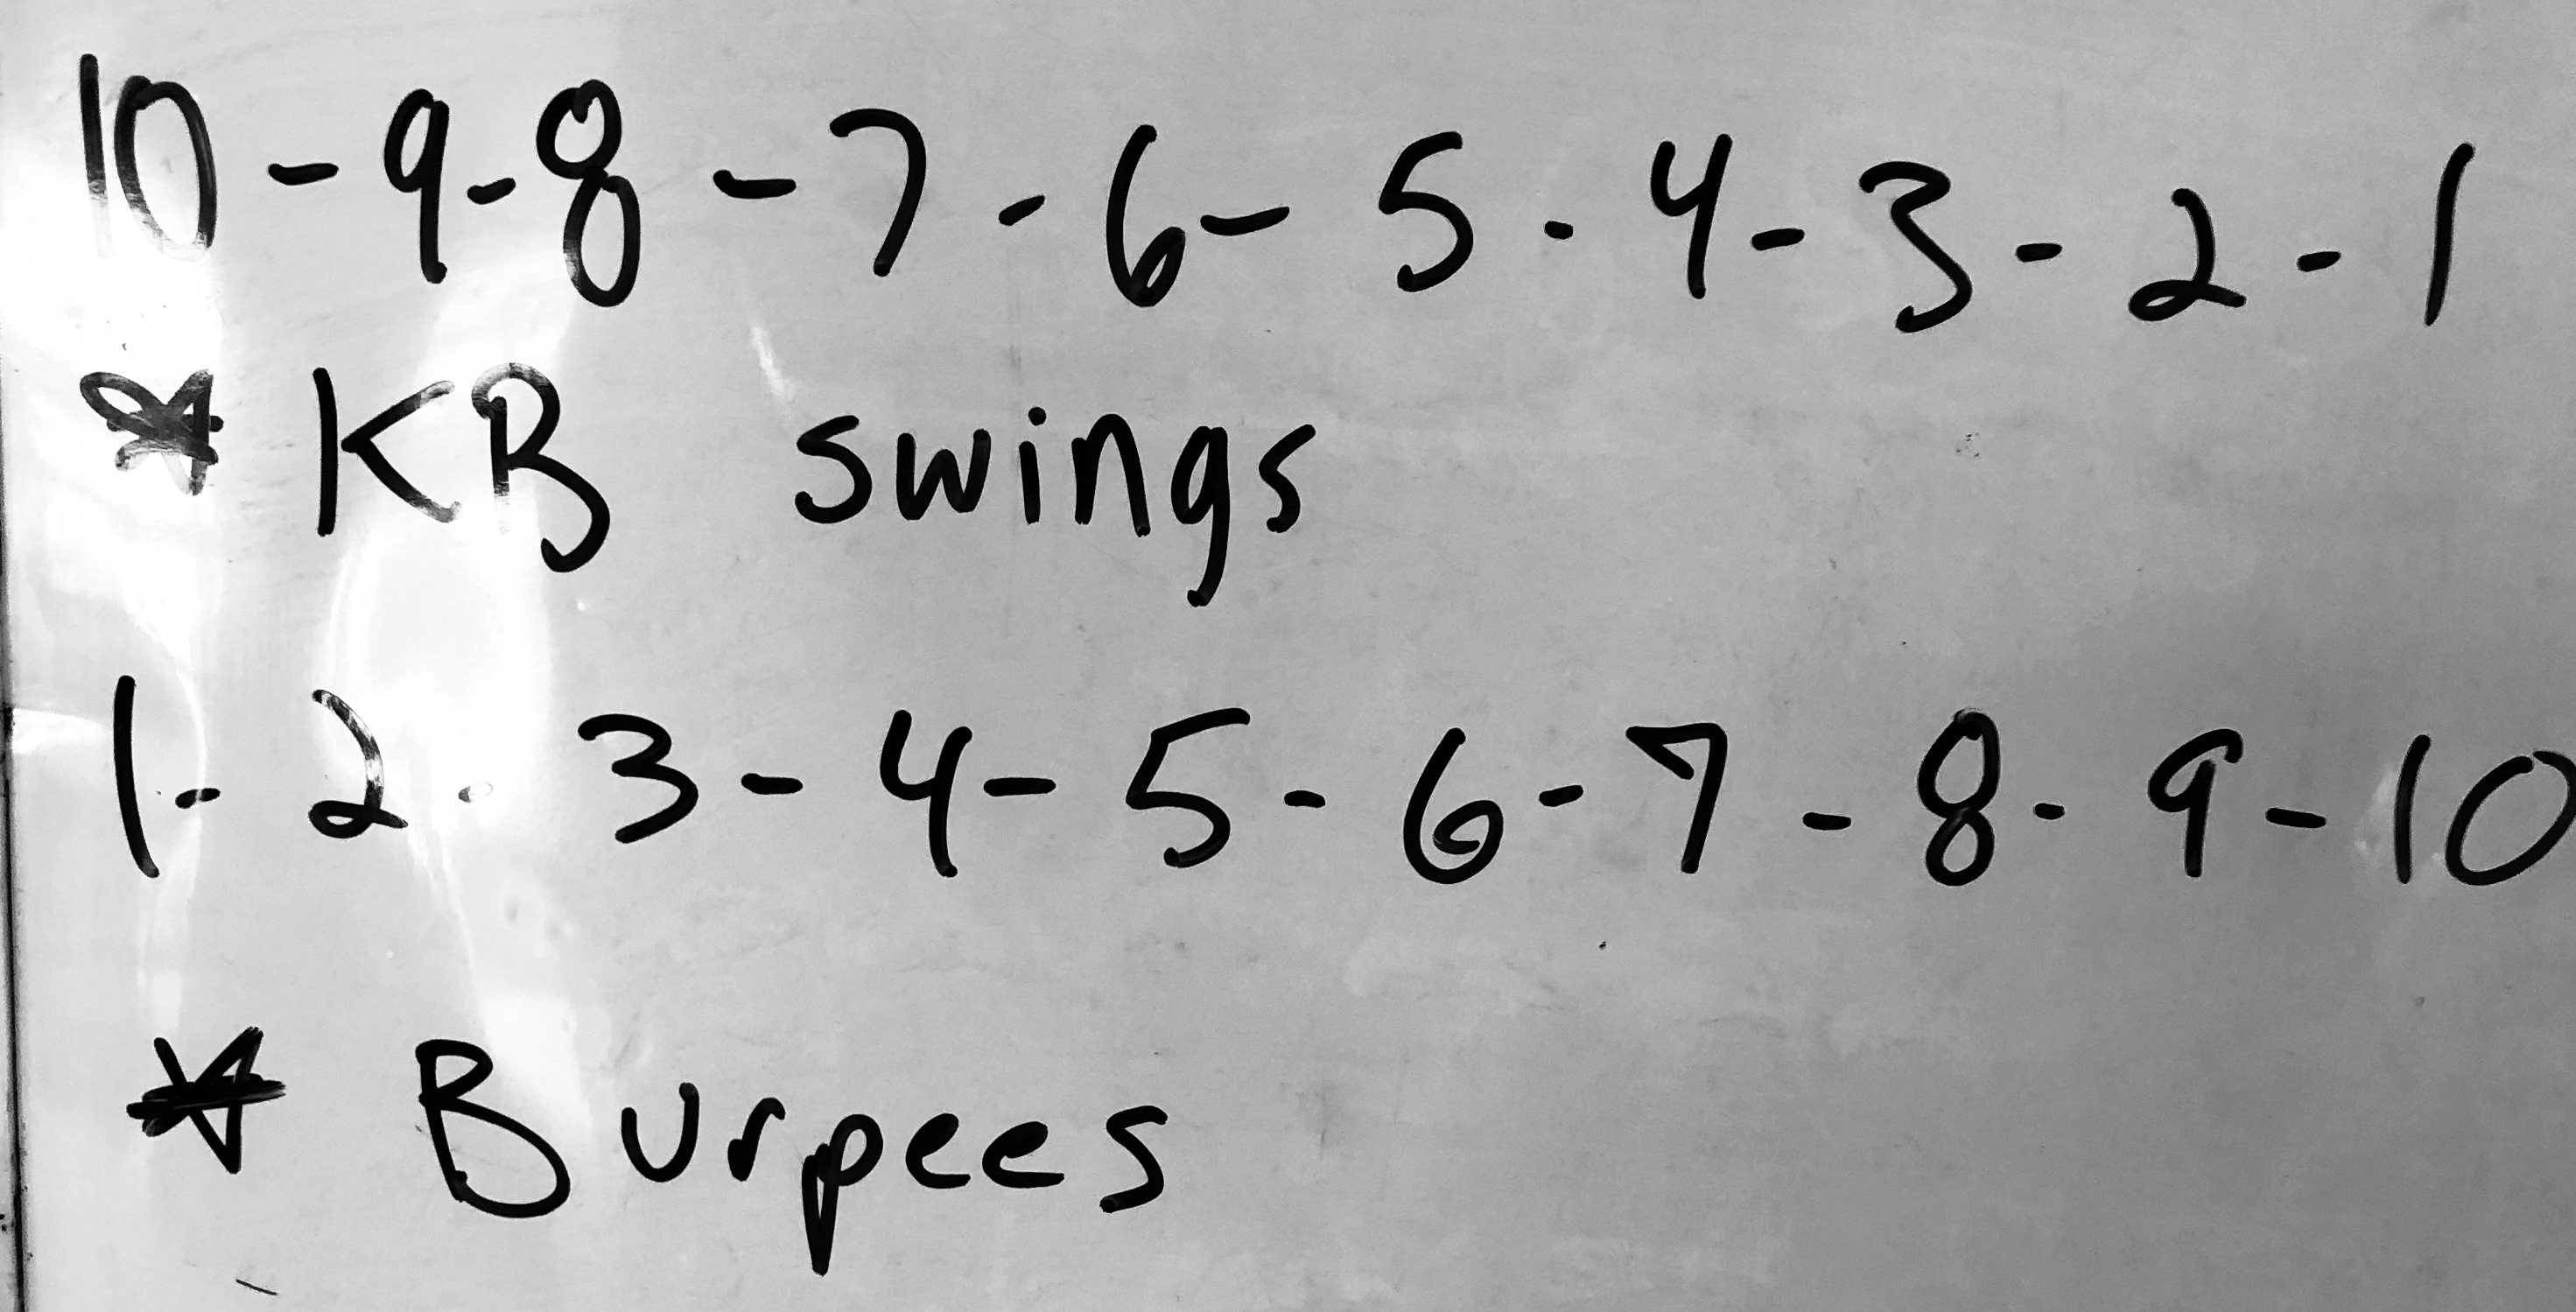 10 - 9 - 8 - 7 - 6 - 5 - 4 - 3 - 2 - 1
* KB swings
1 - 2 - 3 - 4 - 5 - 6 - 7 - 8 - 9 - 10
* Burpees